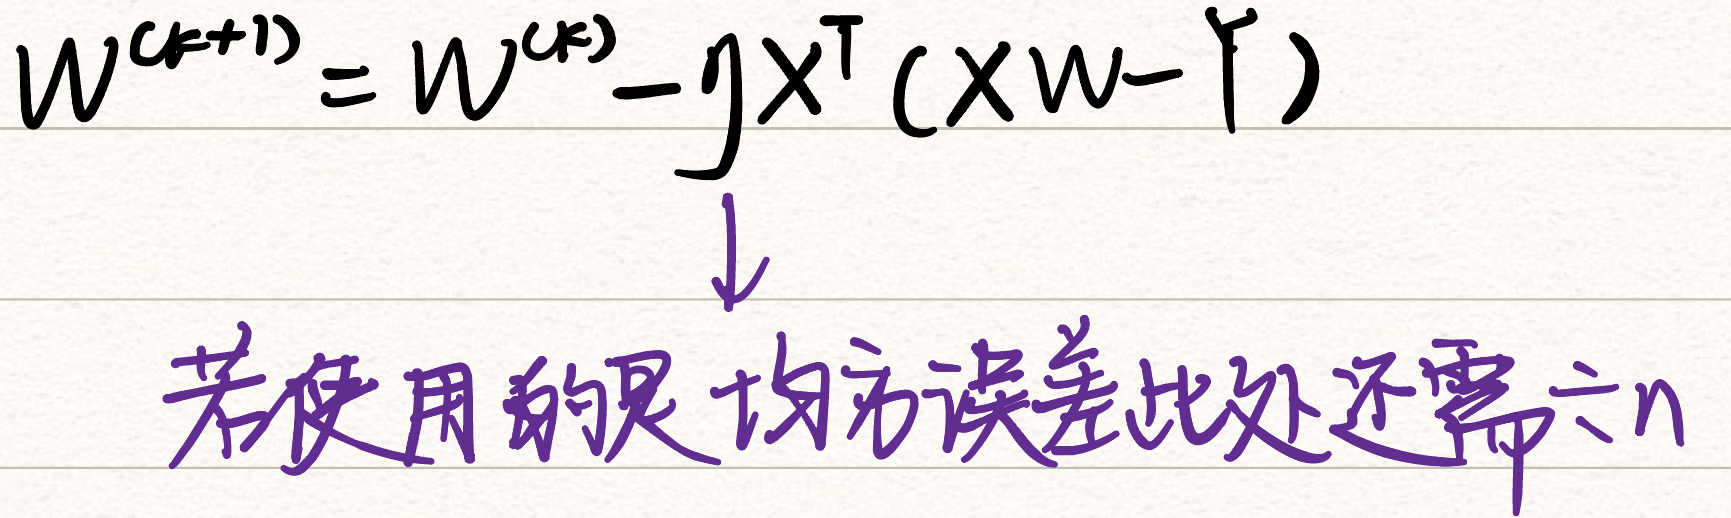 W^(k+1) = W^(k) - ηX^T(XW-Y)
↓
若使用的是均方误差此处还需÷n